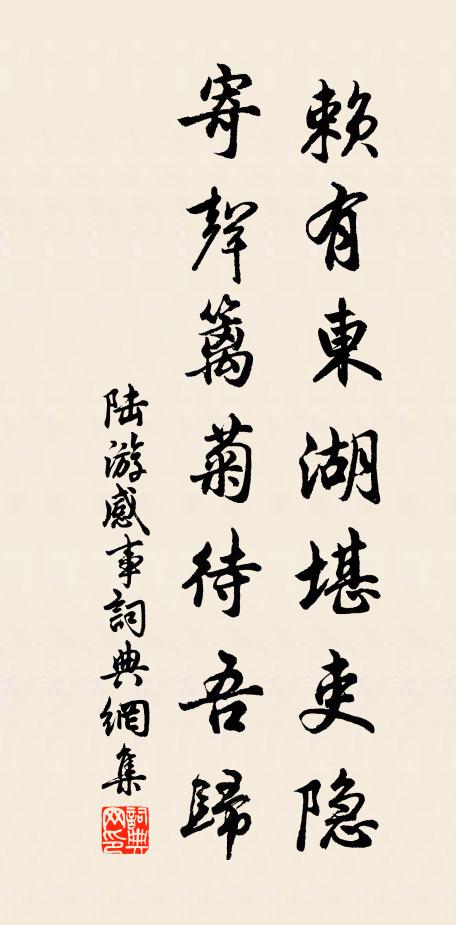 賴有東湖堪吏隐
寄聲篱菊待吾歸
陆游感事詞典網集
詞典網印